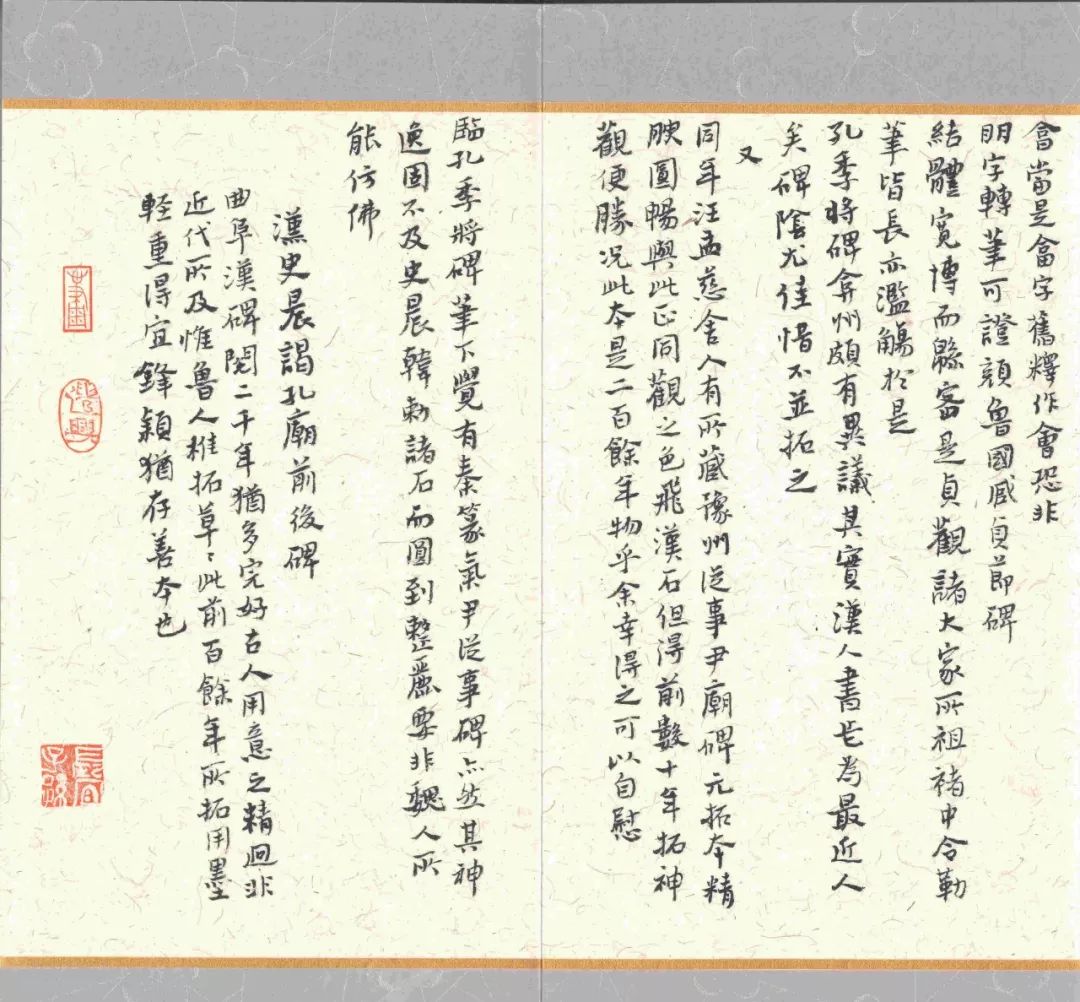 畣當是畣字舊釋作會恐非
明字轉筆可證顏魯國臧貞莭碑
結體寬博而緜密是貞觀諸大家所祖褚中令勒
筆皆長亦濫觴於是
孔季將碑弇州頗有異議其實漢人書此為最近人
矣碑陰尤佳惜不並拓之
又
同年汪孟慈舍人有所藏豫州從事尹廟碑元拓本精
腴圓暢與此正同觀之色飛漢石但得前數十年拓神
觀便勝況此本是二百餘年物乎余幸得之可以自慰
臨孔季將碑筆下覺有秦篆氣尹從事碑亦然其神
逸固不及史晨韓勑諸石而圓到整麗要非魏人所
能仿佛
漢史晨謁孔廟前後碑
曲阜漢碑閱二千年猶多完好古人用意之精迥非
近代所及惟魯人椎拓草〻此前百餘年所拓用墨
輕重得宜鋒穎猶存善本也
逸興
長宜子孫